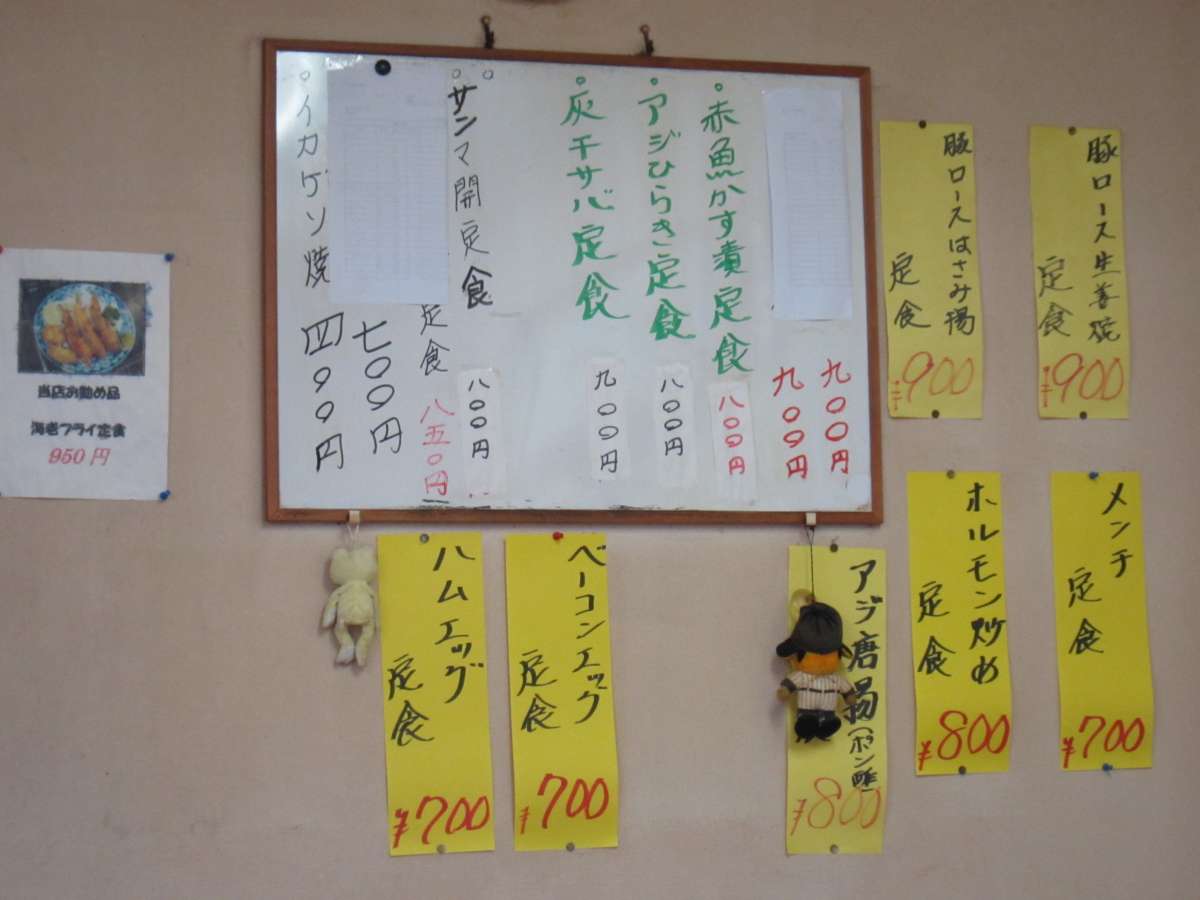 豚ロース生姜焼
定食
¥900
豚ロースはさみ揚
定食
¥900
九〇〇円
九〇〇円
赤魚かす漬定食
八〇〇円
アジひらき定食
八〇〇円
炭干サバ定食
九〇〇円
サンマ開定食
八〇〇円
定食
八五〇円
七〇〇円
イカゲソ焼
四〇〇円
当店お勧め品
海老フライ定食
950円
メンチ
定食
¥700
ホルモン炒め
定食
¥800
アジ唐揚(ポン酢)
¥800
ベーコンエッグ
定食
¥700
ハムエッグ
定食
¥700